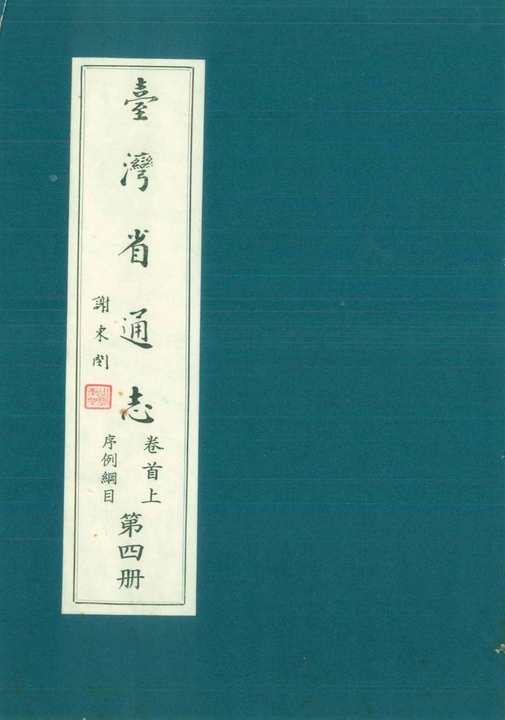 臺灣省通志
卷首上
序例綱目
第四册
謝東閔